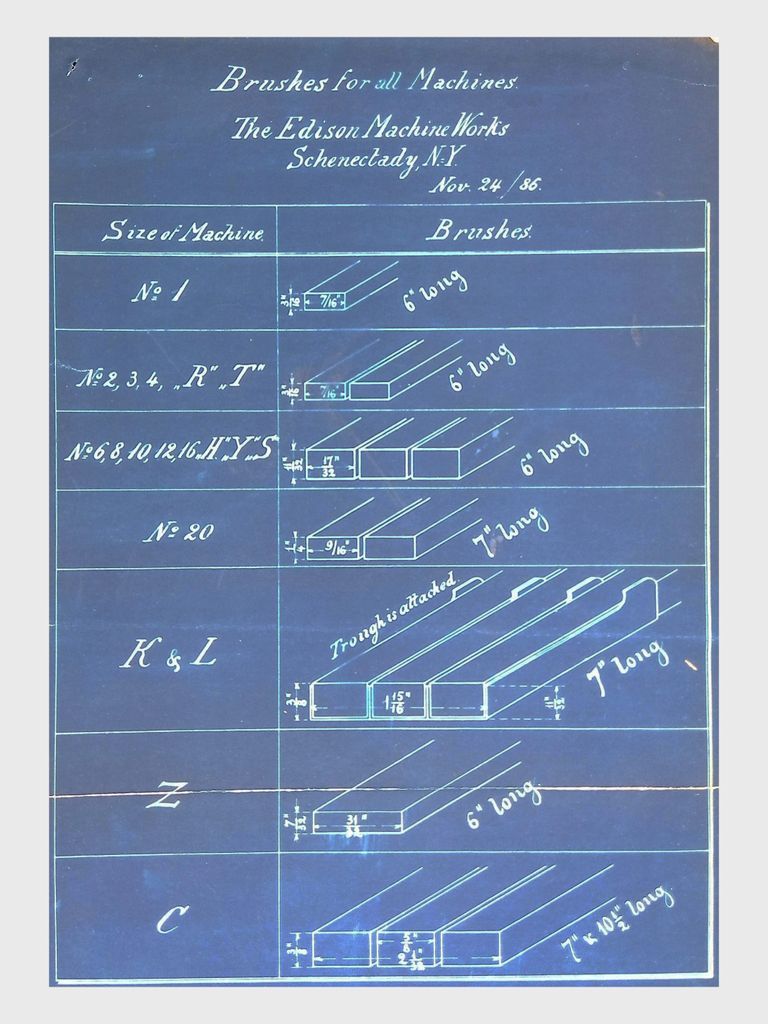 Brushes for all Machines.
The Edison Machine Works
Schenectady, N.Y.
Nov. 24 / 86.
Size of Machine. Brushes.
No 1 3/16" 7/16" 6" long
No 2, 3, 4, „R" „T" 3/16" 7/16" 6" long
No 6, 8, 10, 12, 16, „H" „Y" „S" 11/32" 17/32" 6" long
No 20 1/4" 9/16" 7" long
Trough is attached.
K & L 3/8" 1 15/16" 11/32" 7" long
Z 7/32" 31/32" 6" long
C 3/8" 5/8" 2 1/32" 7" & 10 1/2" long